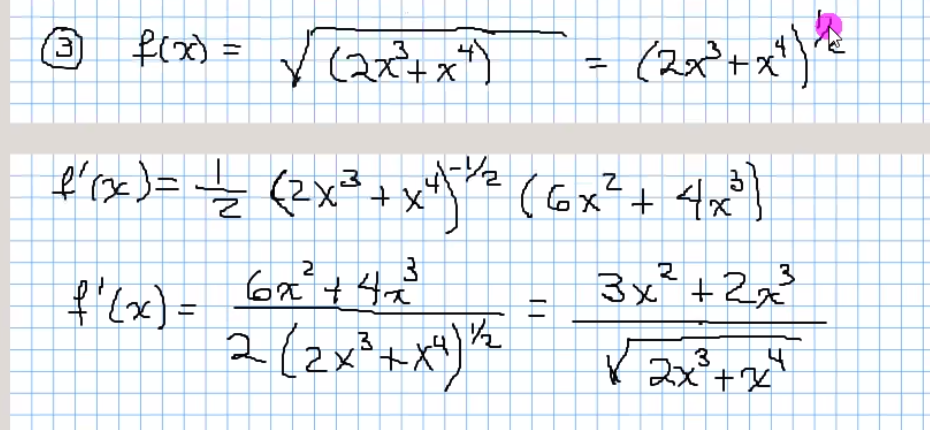 ③ f(x) = √(2x³+x⁴) = (2x³+x⁴)^½
f'(x) = 1/2 (2x³+x⁴)^-1/2 (6x²+4x³)
f'(x) = (6x²+4x³)/(2(2x³+x⁴)^1/2) = (3x²+2x³)/√(2x³+x⁴)